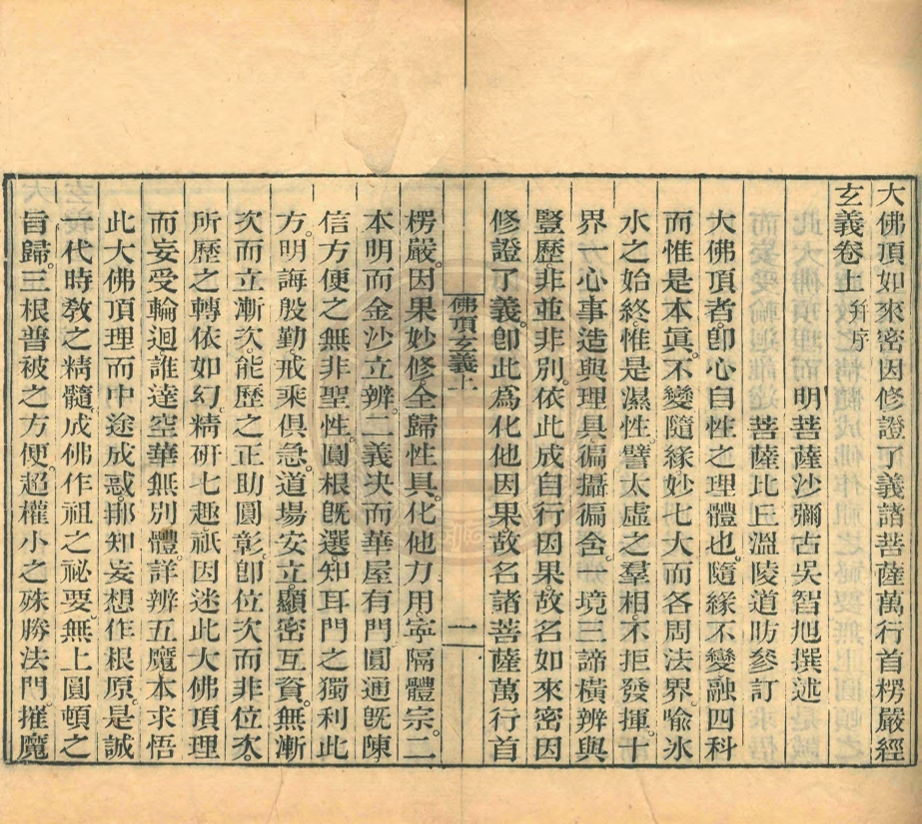 大佛頂如來密因修證了義諸菩薩萬行首楞嚴經
玄義卷上并序
明菩薩沙彌古吳智旭撰述
菩薩比丘溫陵道昉參訂
大佛頂者。卽心自性之理體也。隨緣不變。融四科
而惟是本眞。不變隨緣。妙七大而各周法界。喩氷
水之始終。惟是濕性。譬太虛之羣相。不拒發揮。十
界一心。事造與理具徧攝徧含。一境三諦。橫辨與
豎歷非並非別。依此成自行因果。故名如來密因
修證了義。卽此爲化他因果。故名諸菩薩萬行首
佛頂玄義上
一
楞嚴。因果妙修。全歸性具。化他力用。寧隔體宗。二
本明而金沙立辨。二義決而華屋有門。圓通旣陳。
信方便之無非聖性。圓根旣選。知耳門之獨利此
方。明誨殷勤。戒乘俱急。道場安立。顯密互資。無漸
次而立漸次。能歷之正助圓彰。卽位次而非位次。
所歷之轉依如幻。精硏七趣。祇因迷此大佛頂理
而妄受輪迴。誰達空華無別體。詳辨五魔。本求悟
此大佛頂理而中途成惑。那知妄想作根原。是誠
一代時敎之精髓。成佛作祖之祕要。無上圓頓之
旨歸。三根普被之方便。超權小之殊勝法門。摧魔